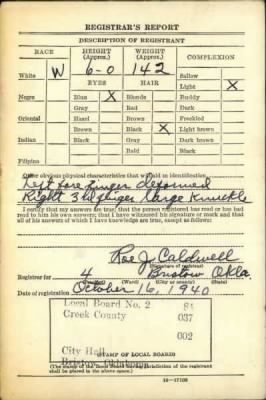 REGISTRAR'S REPORT
DESCRIPTION OF REGISTRANT
RACE HEIGHT (Approx.) WEIGHT (Approx.) COMPLEXION
White W 6-0 142 Sallow
EYES HAIR Light X
Negro Blue X Blonde Ruddy
Gray Red Dark
Oriental Hazel Brown Freckled
Brown Black X Light brown
Indian Black Gray Dark brown
Bald Black
Filipino
Other obvious physical characteristics that will aid in identification
Left fore finger deformed
Right 3rd finger large knuckle
I certify that my answers are true; that the person registered has read or has had
read to him his own answers; that I have witnessed his signature or mark and that
all of his answers of which I have knowledge are true, except as follows:
Roe J. Caldwell
(Signature of registrar)
Registrar for 4 Bristow Okla
(Ward) (City or county)
Date of registration October 16, 1940
Local Board No. 2 84
Creek County 037
002
City Hall
Bristow, Oklahoma
STAMP OF LOCAL BOARD
(The stamp of the Local Board having jurisdiction of the registrant
shall be placed in the above space.)